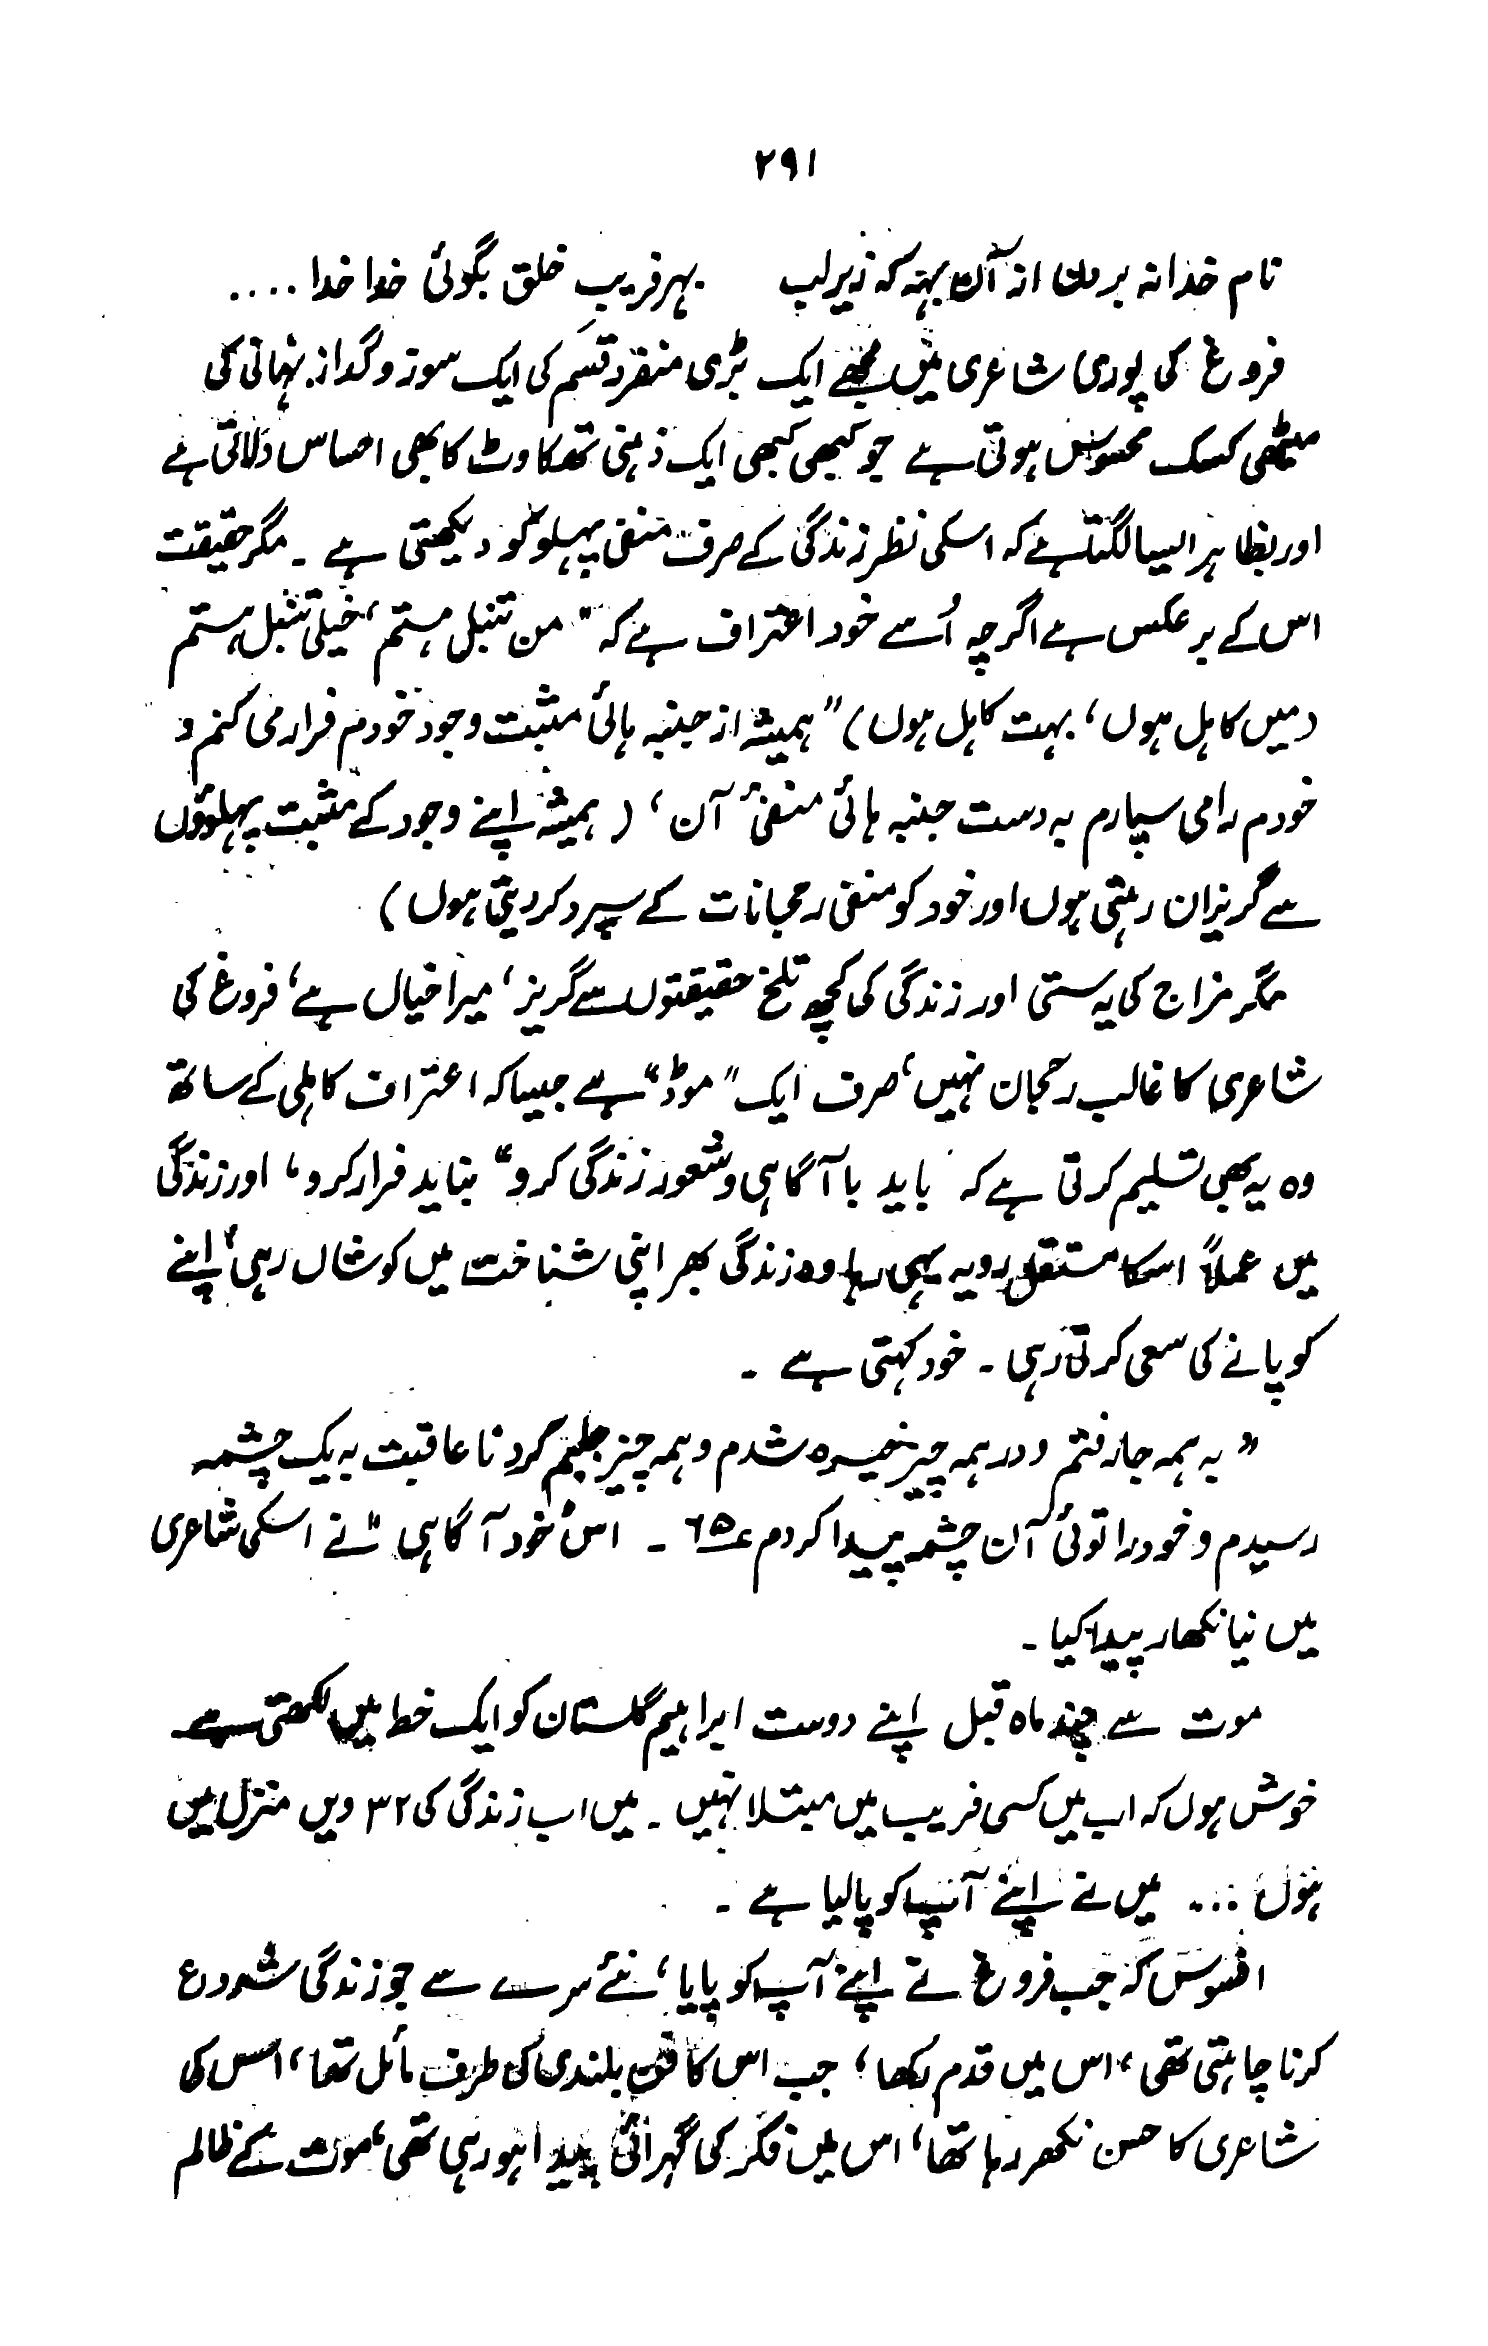 ۲۹۱
نام خدا نه بردن از آن بہتہ کہ زیر لب بہر فریب خلق بگوئی خدا خدا ....
فروغ کی پوری شاعری میں مجھے ایک بڑی منفرد قسم کی ایک سوز و گداز نہانی کی
میٹھی کسک محسوس ہوتی ہے جو کبھی کبھی ایک ذہنی تھکاوٹ کا بھی احساس دلاتی ہے
اور بظاہر ایسا لگتا ہے کہ اسکی نظر زندگی کے صرف منفی پہلو کو دیکھتی ہے ۔ مگر حقیقت
اس کے برعکس ہے اگرچہ اُسے خود اعتراف ہے کہ "من تنبل ہستم، خیلی تنبل ہستم
(میں کاہل ہوں، بہت کاہل ہوں) "ہمیشہ از جنبہ ہائی مثبت وجود خودم فرار می کنم و
خودم را می سپارم بہ دست جنبہ ہائی منفیٔ آن، (ہمیشہ اپنے وجود کے مثبت پہلوؤں
سے گریزان رہتی ہوں اور خود کو منفی رحجانات کے سپرد کر دیتی ہوں)
مگر مزاج کی یہ سستی اور زندگی کی کچھ تلخ حقیقتوں سے گریز، میرا خیال ہے، فروغ کی
شاعری کا غالب رحجان نہیں، صرف ایک "موڈ" ہے جیسا کہ اعتراف کاہلی کے ساتھ
وہ یہ بھی تسلیم کرتی ہے کہ باید با آگاہی و شعور زندگی کرو" نباید فرار کرو، اور زندگی
میں عملاً اسکا مستقل رویہ یہی رہا وہ زندگی بھر اپنی شناخت میں کوشاں رہی، اپنے
کو پانے کی سعی کرتی رہی ۔ خود کہتی ہے ۔
"بہ ہمہ جا رفتم و در ہمہ چیز خیرہ شدم و ہمہ چیز جلبم کرد تا عاقبت بہ یک چشمہ
رسیدم و خود را توئی آن چشمہ پیدا کردم ۶۵؎ ۔ اس "خود آگاہی" نے اسکی شاعری
میں نیا نکھار پیدا کیا ۔
موت سے چند ماہ قبل اپنے دوست ابراہیم گلستان کو ایک خط میں لکھتی ہے
خوش ہوں کہ اب میں کسی فریب میں مبتلا نہیں ۔ میں اب زندگی کی ۳۲ ویں منزل میں
ہوں ... میں نے اپنے آپ کو پا لیا ہے ۔
افسوس کہ جب فروغ نے اپنے آپ کو پایا، نئے سرے سے جو زندگی شروع
کرنا چاہتی تھی، اس میں قدم رکھا، جب اس کا فن بلندی کی طرف مائل تھا، اس کی
شاعری کا حسن نکھر رہا تھا، اس میں فکر کی گہرائی پیدا ہو رہی تھی، موت کے ظالم